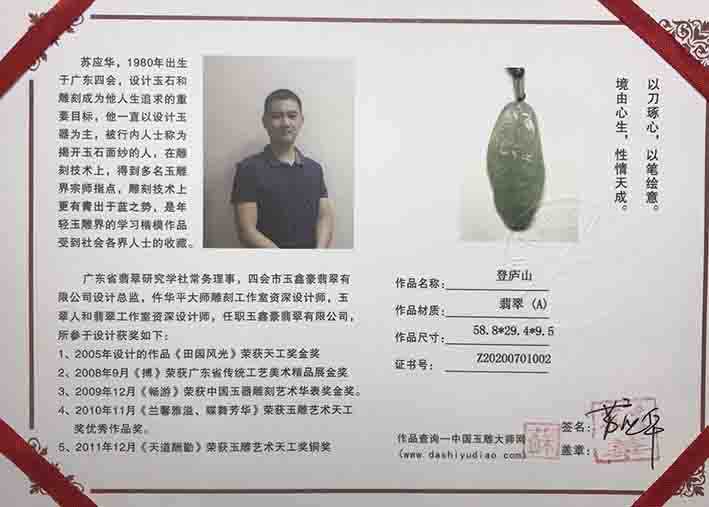 苏应华，1980年出生
于广东四会，设计玉石和
雕刻成为他人生追求的重
要目标，他一直以设计玉
器为主，被行内人士称为
揭开玉石面纱的人，在雕
刻技术上，得到多名玉雕
界宗师指点，雕刻技术上
更有青出于蓝之势，是年
轻玉雕界的学习楷模作品
受到社会各界人士的收藏。
广东省翡翠研究学社常务理事，四会市玉鑫豪翡翠有
限公司设计总监，仵华平大师雕刻工作室资深设计师，玉
翠人和翡翠工作室资深设计师，任职玉鑫豪翡翠有限公司，
所参于设计获奖如下：
1、2005年设计的作品《田园风光》荣获天工奖金奖
2、2008年9月《搏》荣获广东省传统工艺美术精品展金奖
3、2009年12月《畅游》荣获中国玉器雕刻艺术华表奖金奖。
4、2010年11月《兰馨雅溢、蝶舞芳华》荣获玉雕艺术天工
奖优秀作品奖。
5、2011年12月《天道酬勤》荣获玉雕艺术天工奖铜奖
以刀琢心，以笔绘意。
境由心生，性情天成。
作品名称： 登庐山
作品材质： 翡翠（A）
作品尺寸： 58.8*29.4*9.5
证书号： Z20200701002
作品查询一中国玉雕大师网
(www.dashiyudiao.com)
签名：
盖章：